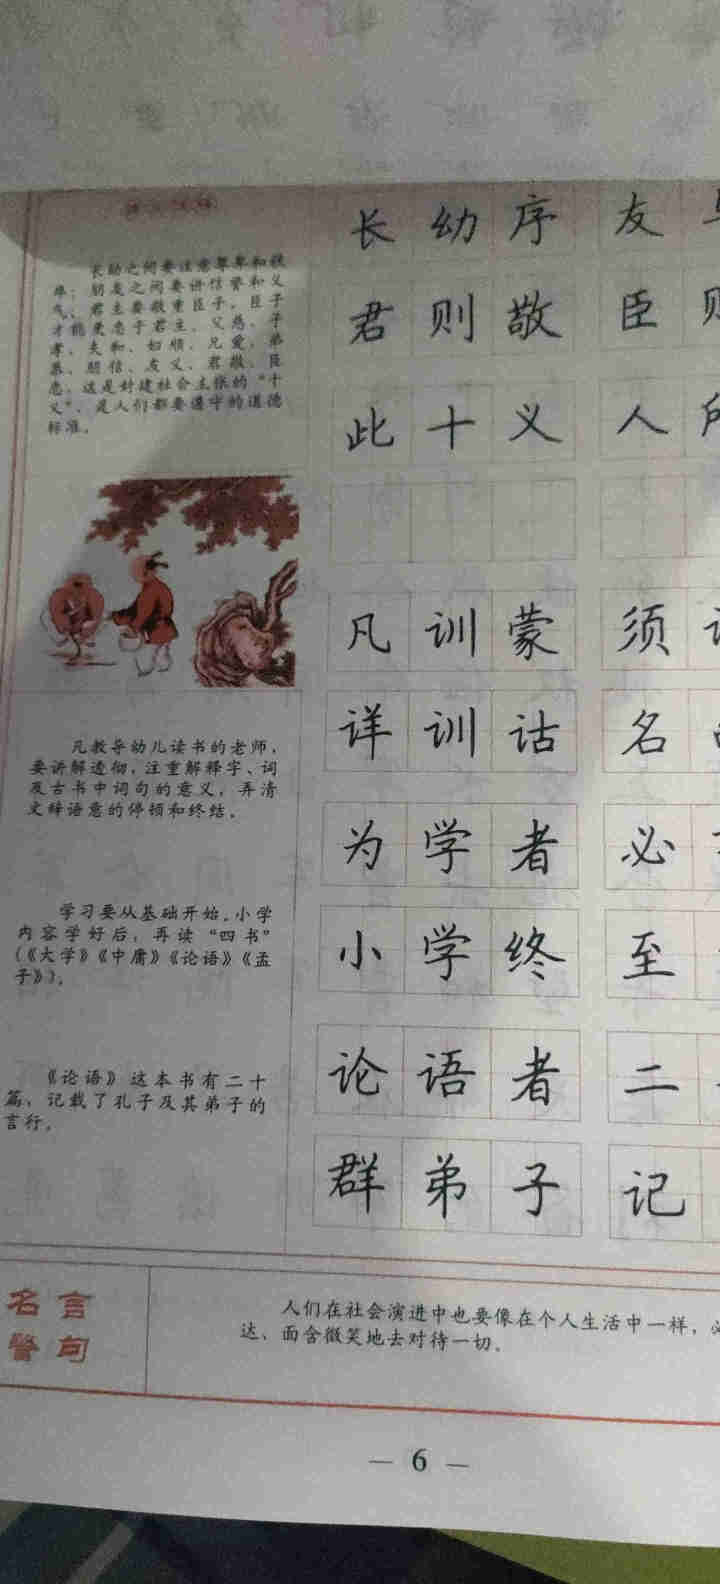 长幼之间要注意尊卑和秩
序；朋友之间要讲信誉和义
气。君主要敬重臣子，臣子
才能忠于君主。父慈、子
孝、夫和、妇顺、兄爱、弟
恭、朋信、友义、君敬、臣
忠，这是封建社会主张的“十
义”，是人们都要遵守的道德
标准。
长幼序 友
君则敬 臣则
此十义 人所
凡训蒙 须
详训诂 名
为学者 必
小学终 至
论语者 二
群弟子 记
凡教导幼儿读书的老师，
要讲解透彻，注重解释字、词
及古书中词句的意义，弄清
文辞语意的停顿和终结。
学习要从基础开始。小学
内容学好后，再读“四书”
（《大学》《中庸》《论语》《孟
子》）。
《论语》这本书有二十
篇，记载了孔子及其弟子的
言行。
名言
警句
人们在社会演进中也要像在个人生活中一样，
达、面含微笑地去对待一切。
— 6 —